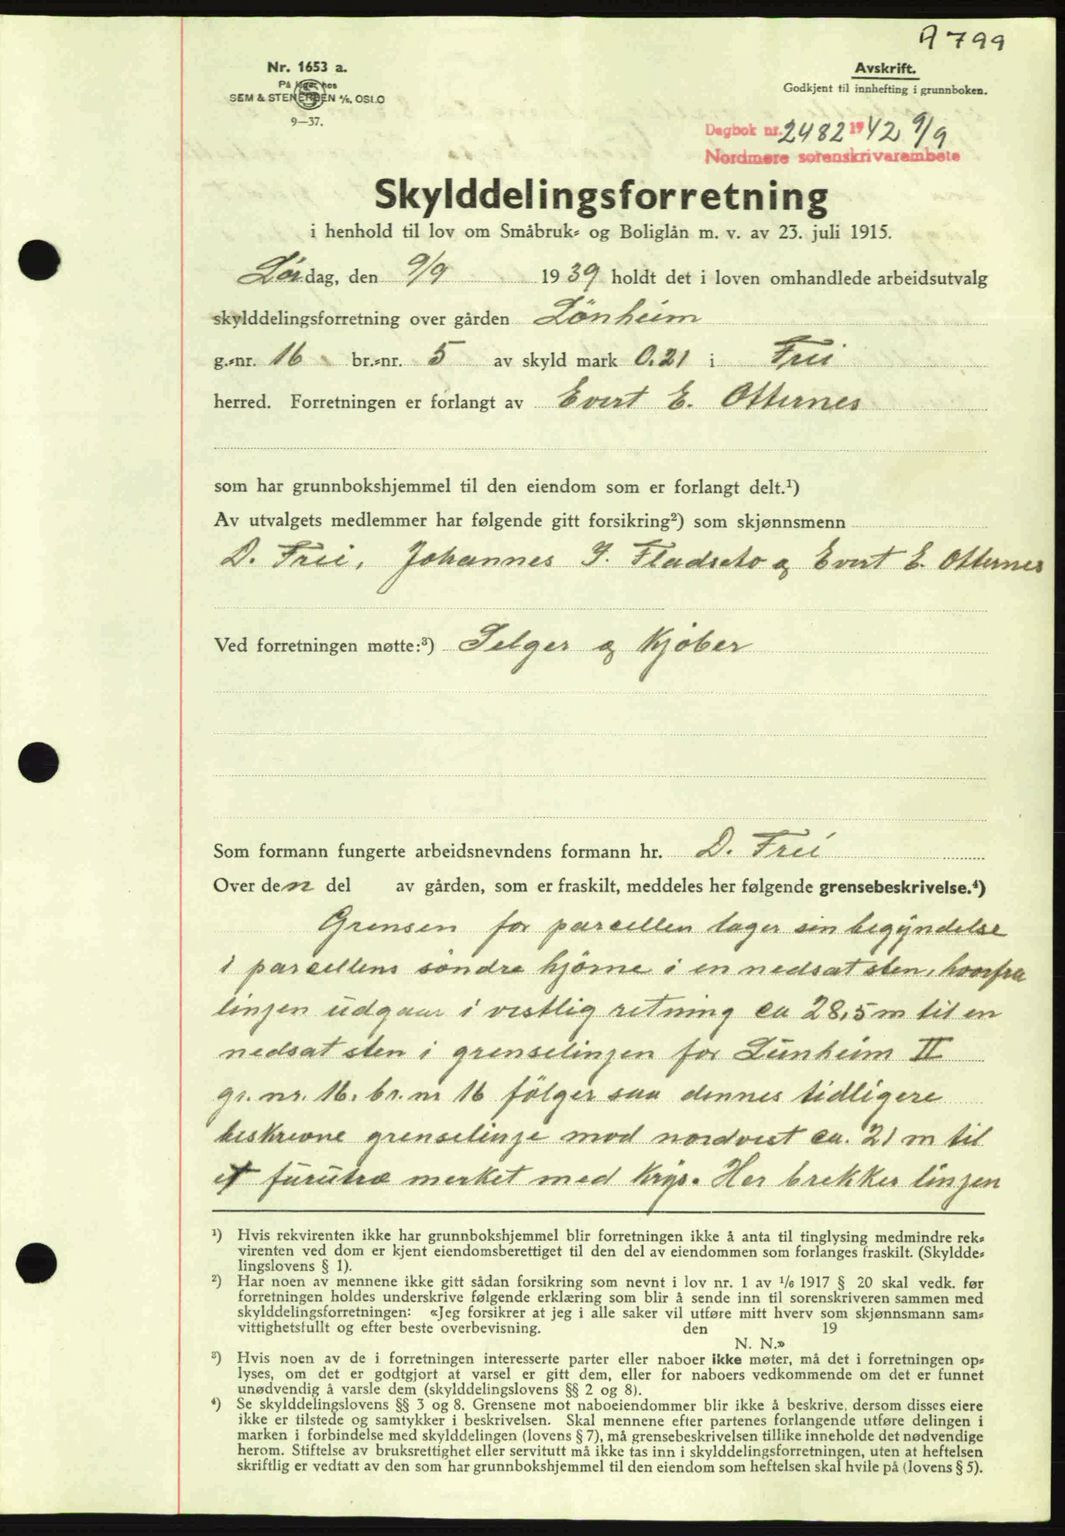 A 799
Nr. 1653 a.
På lager hos
SEM & STENERSEN A/S, OSLO
9—37.
Avskrift.
Godkjent til innhefting i grunnboken.
Dagbok nr. 2482 1942 9/9
Nordmøre sorenskrivarembete
Skylddelingsforretning
i henhold til lov om Småbruk- og Boliglån m. v. av 23. juli 1915.
Lørdag, den 9/9 1939 holdt det i loven omhandlede arbeidsutvalg
skylddelingsforretning over gården Lönheim
g.-nr. 16 br.-nr. 5 av skyld mark 0.21 i Frei
herred. Forretningen er forlangt av Evert E. Otternes
som har grunnbokshjemmel til den eiendom som er forlangt delt.¹)
Av utvalgets medlemmer har følgende gitt forsikring²) som skjønnsmenn
D. Frei, Johannes J. Fladseto og Evert E. Otternes
Ved forretningen møtte:³) Selger og Kjöber
Som formann fungerte arbeidsnevndens formann hr. D. Frei
Over den del av gården, som er fraskilt, meddeles her følgende grensebeskrivelse.⁴)
Grensen for parcellen tager sin begyndelse
i parcellens söndre hjörne i en nedsat sten, hvorfra
linjen udgaar i vestlig retning ca 28,5 m til en
nedsat sten i grenselinjen for Lünheim II
gr. nr. 16. br. nr 16 fölger saa dennes tidligere
beskrevne grenselinje mod nordvest ca. 21 m til
et furutræ merket med Krys. Her brekker linjen
¹) Hvis rekvirenten ikke har grunnbokshjemmel blir forretningen ikke å anta til tinglysing medmindre rek-
virenten ved dom er kjent eiendomsberettiget til den del av eiendommen som forlanges fraskilt. (Skyldde-
lingslovens § 1).
²) Har noen av mennene ikke gitt sådan forsikring som nevnt i lov nr. 1 av 1/6 1917 § 20 skal vedk. før
forretningen holdes underskrive følgende erklæring som blir å sende inn til sorenskriveren sammen med
skylddelingsforretningen: «Jeg forsikrer at jeg i alle saker vil utføre mitt hverv som skjønnsmann sam-
vittighetsfullt og efter beste overbevisning. den 19
N. N.»
³) Hvis noen av de i forretningen interesserte parter eller naboer ikke møter, må det i forretningen op-
lyses, om det er godtgjort at varsel er gitt dem, eller for naboers vedkommende om det er funnet
unødvendig å varsle dem (skylddelingslovens §§ 2 og 8).
⁴) Se skylddelingslovens §§ 3 og 8. Grensene mot naboeiendommer blir ikke å beskrive, dersom disses eiere
ikke er tilstede og samtykker i beskrivelsen. Skal mennene efter partenes forlangende utføre delingen i
marken i forbindelse med skylddelingen (lovens § 7), må grensebeskrivelsen tillike inneholde det nødvendige
herom. Stiftelse av bruksrettighet eller servitutt må ikke tas inn i skylddelingsforretningen, uten at heftelsen
skriftlig er vedtatt av den som har grunnbokshjemmel til den eiendom som heftelsen skal hvile på (lovens § 5).